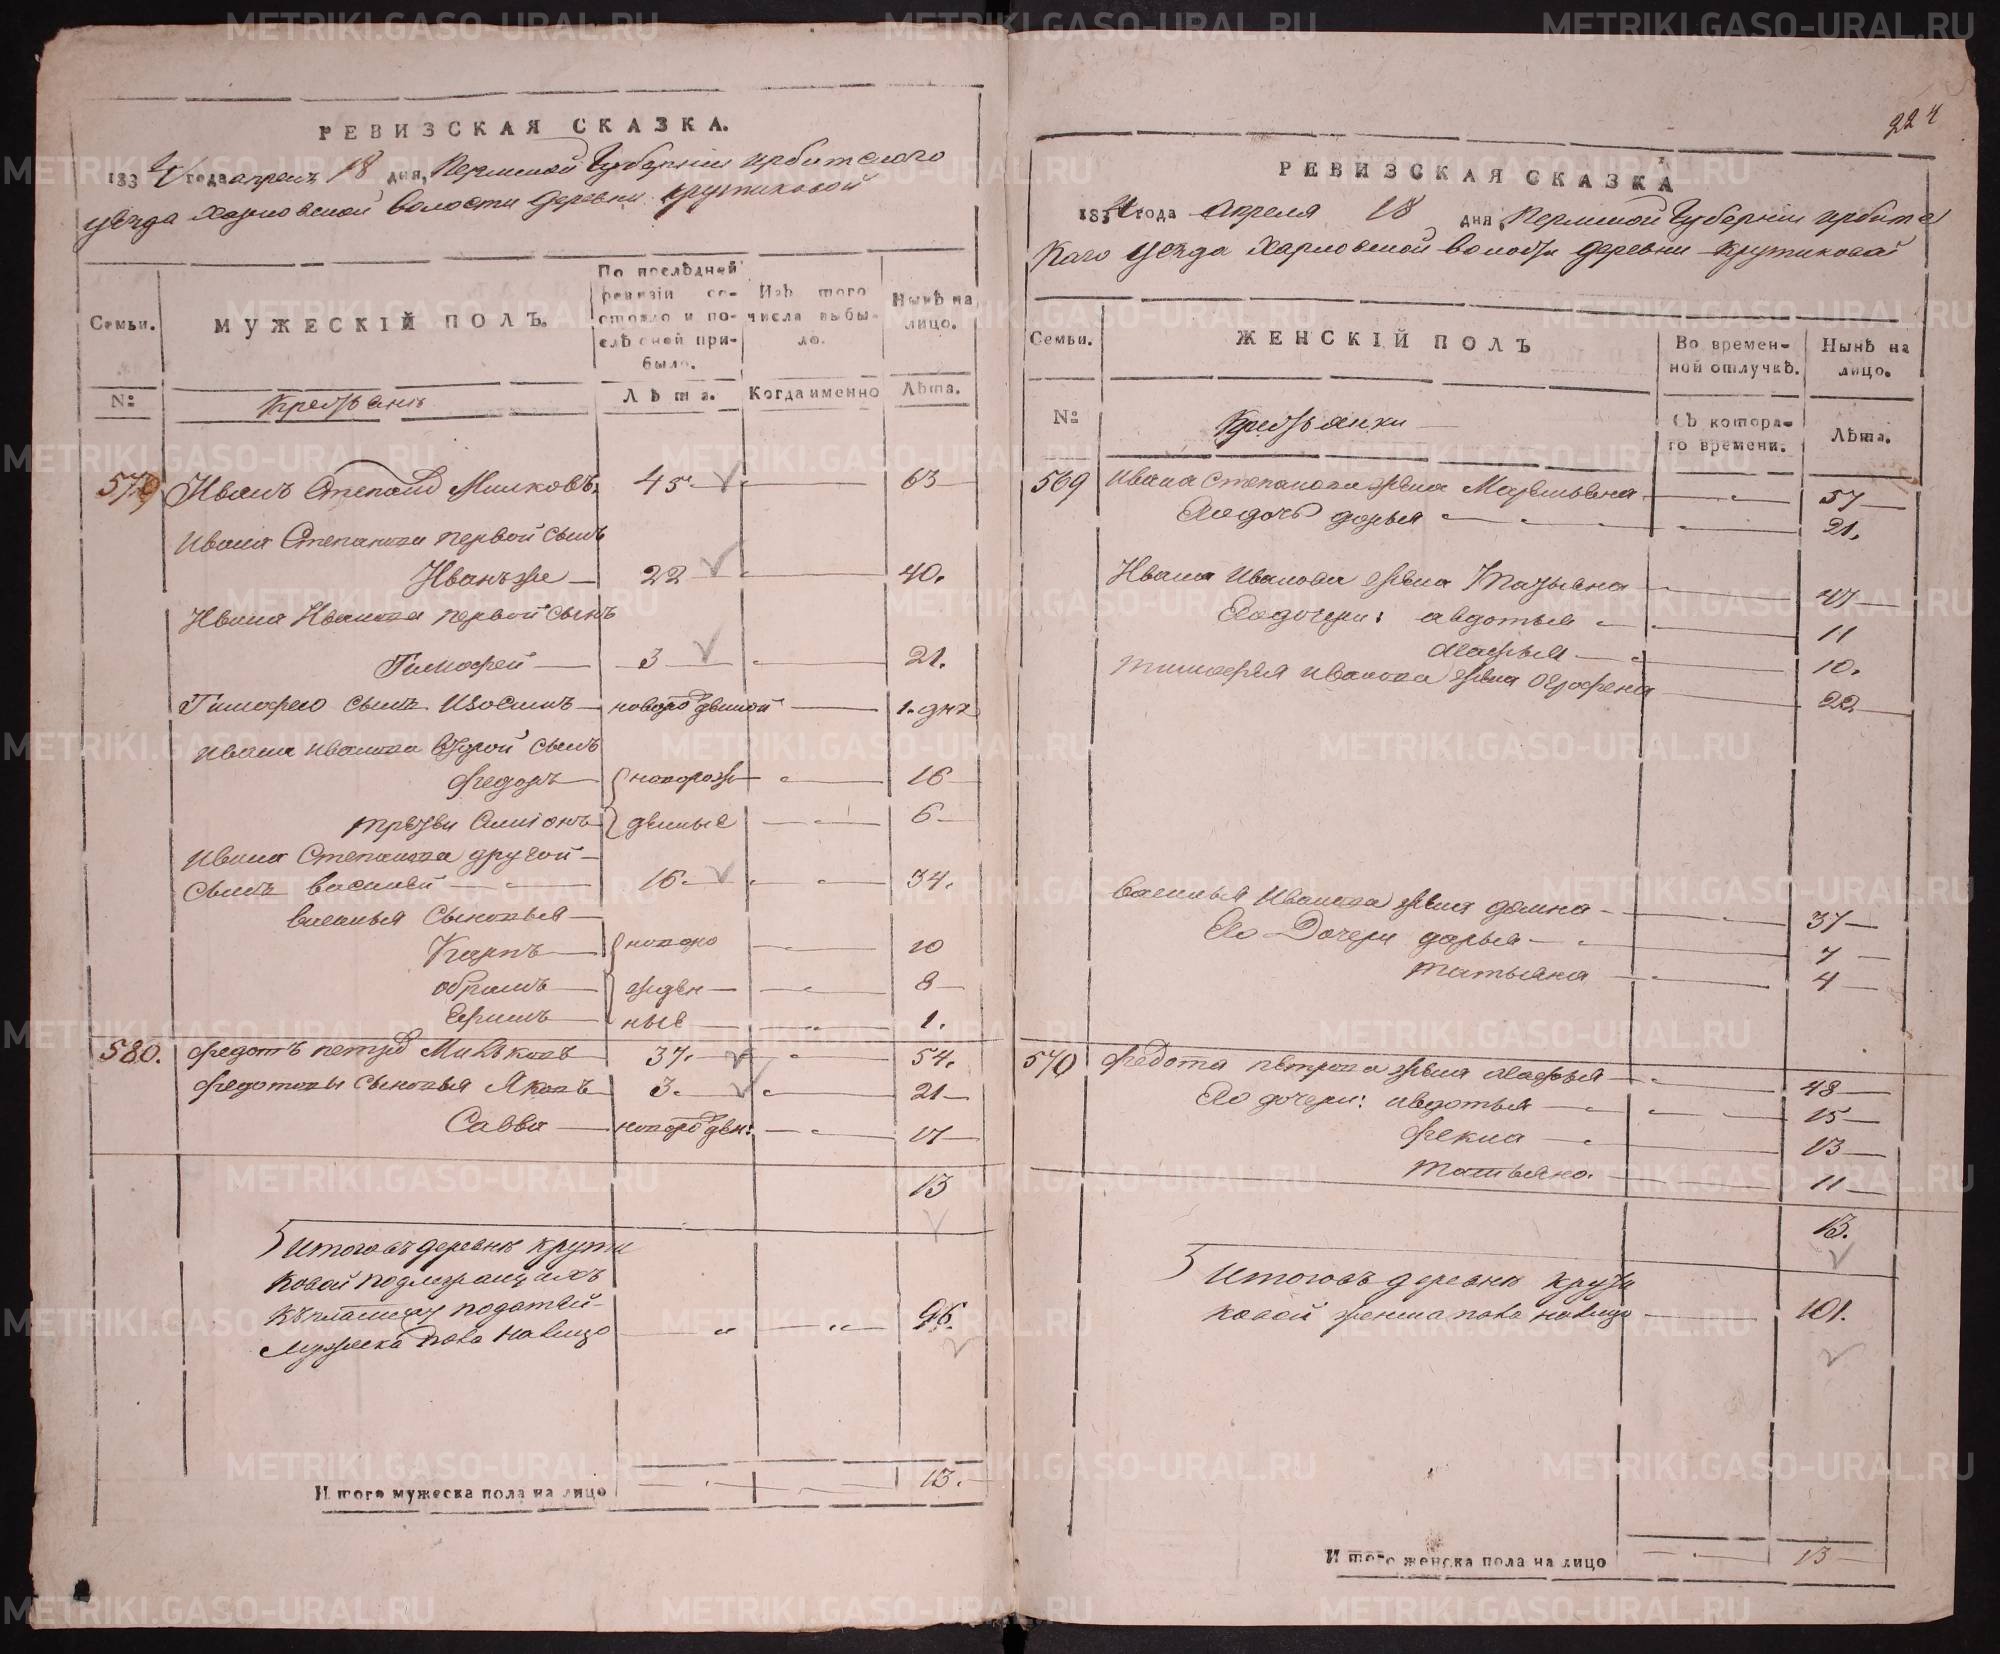 РЕВИЗСКАЯ СКАЗКА.
1834 года апреля 18 дня, Пермской Губернии Ирбитского
уезда Харловской волости деревни Крутиковой
Семьи.
МУЖЕСКІЙ ПОЛЪ.
По послѣдней ревизіи состояло и послѣ оной прибыло.
Изъ того числа выбыло.
Нынѣ на лицо.
№
Крестьяне
Лѣта.
Когда именно
Лѣта.
579 Иванъ Степановъ Милковъ 45 63
Ивана Степанова первой сынъ
Иванъ же 22 40.
Ивана Иванова первой сынъ
Тимофей 3 21.
Тимофею сынъ Изосимъ новорожденной 1. дня
Ивана Иванова второй сынъ
Федоръ новорож 16
третей Симіонъ денные 6
Ивана Степанова другой
сынъ Василей 16. 34.
Василья сыновья
Карпъ новоро 10
обрамъ жден 8
Ефимъ ные 1.
580. Федотъ петровъ Милковъ 37. 54.
Федотовы сыновья Яковъ 3. 21
Савва новорожден: 17
13
Итого въ деревне крути
ковой подлежащихъ
къ платежу податей
мужеска пола налицо 96.
Итого мужеска пола на лицо 13.
224
РЕВИЗСКАЯ СКАЗКА
1834 года Апреля 18 дня, Пермской Губернии Ирбитс
каго уезда Харловской волости деревни Крутиковой
Семьи.
ЖЕНСКІЙ ПОЛЪ
Во временной отлучкѣ.
Нынѣ на лицо.
№
Крестьянки
Съ котораго времени.
Лѣта.
569 Ивана Степанова жена Маремьяна 57
Ево дочь дарья 21.
Ивана Иванова жена Татьяна 47
Ево дочери: авдотья 11
Агафья 10.
Тимофея Иванова жена Ографена 22
Василья Иванова жена домна 37
Ево Дочери дарья 7
татьяна 4
570 Федота петрова жена Агафья 48
Ево дочери: авдотья 15
Фекла 13
татьяна. 11
13.
Итого въ деревне крути
ковой женска пола налицо 101.
Итого женска пола на лицо 13
METRIKI.GASO-URAL.RU